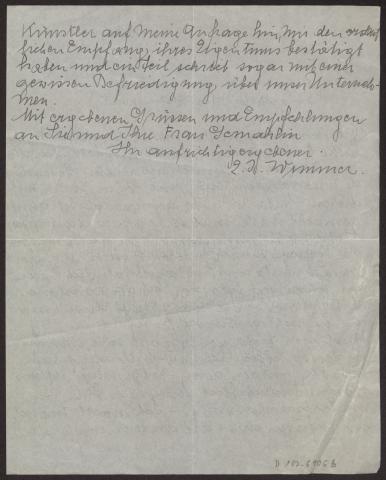 Künstler auf meine Anfrage hin, mir den
lichen Empfang ihres Eigentums bestätigt
haben und ein Teil schrieb sogar mit einer
gewissen Befriedigung über unser Unterneh-
men.
Mit ergebenen Grüssen und Empfehlungen
an Sie und Ihre Frau Gemahlin
Ihr aufrichtig ergebener
Wimmer.